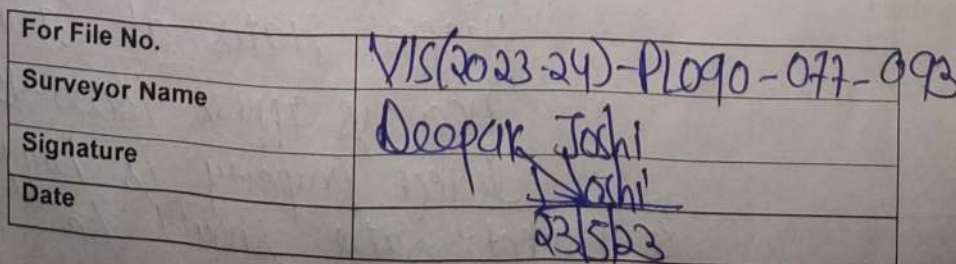 For File No. VIS(2023-24)-PL090-077-093
Surveyor Name Deepak Joshi
Signature DJoshi
Date 23/5/23